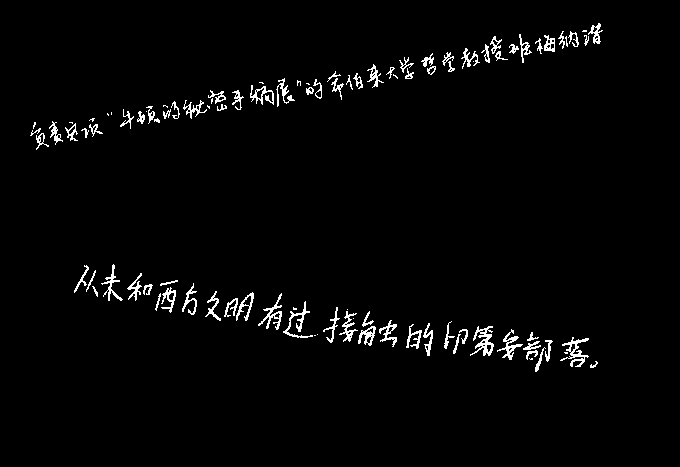 负责这项“牛顿的秘密手稿展”的希伯来大学哲学教授班梅纳潜
从未和西方文明有过接触的印第安部落。